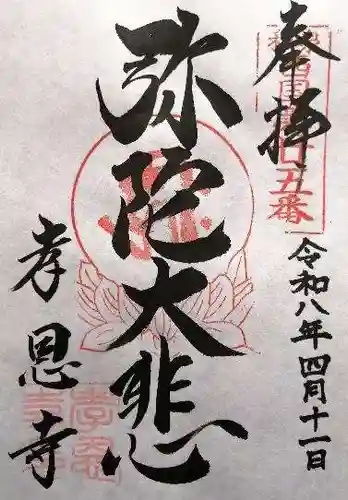 奉拝
廿五番
令和八年四月十一日
弥陀大悲
孝恩寺
孝恩